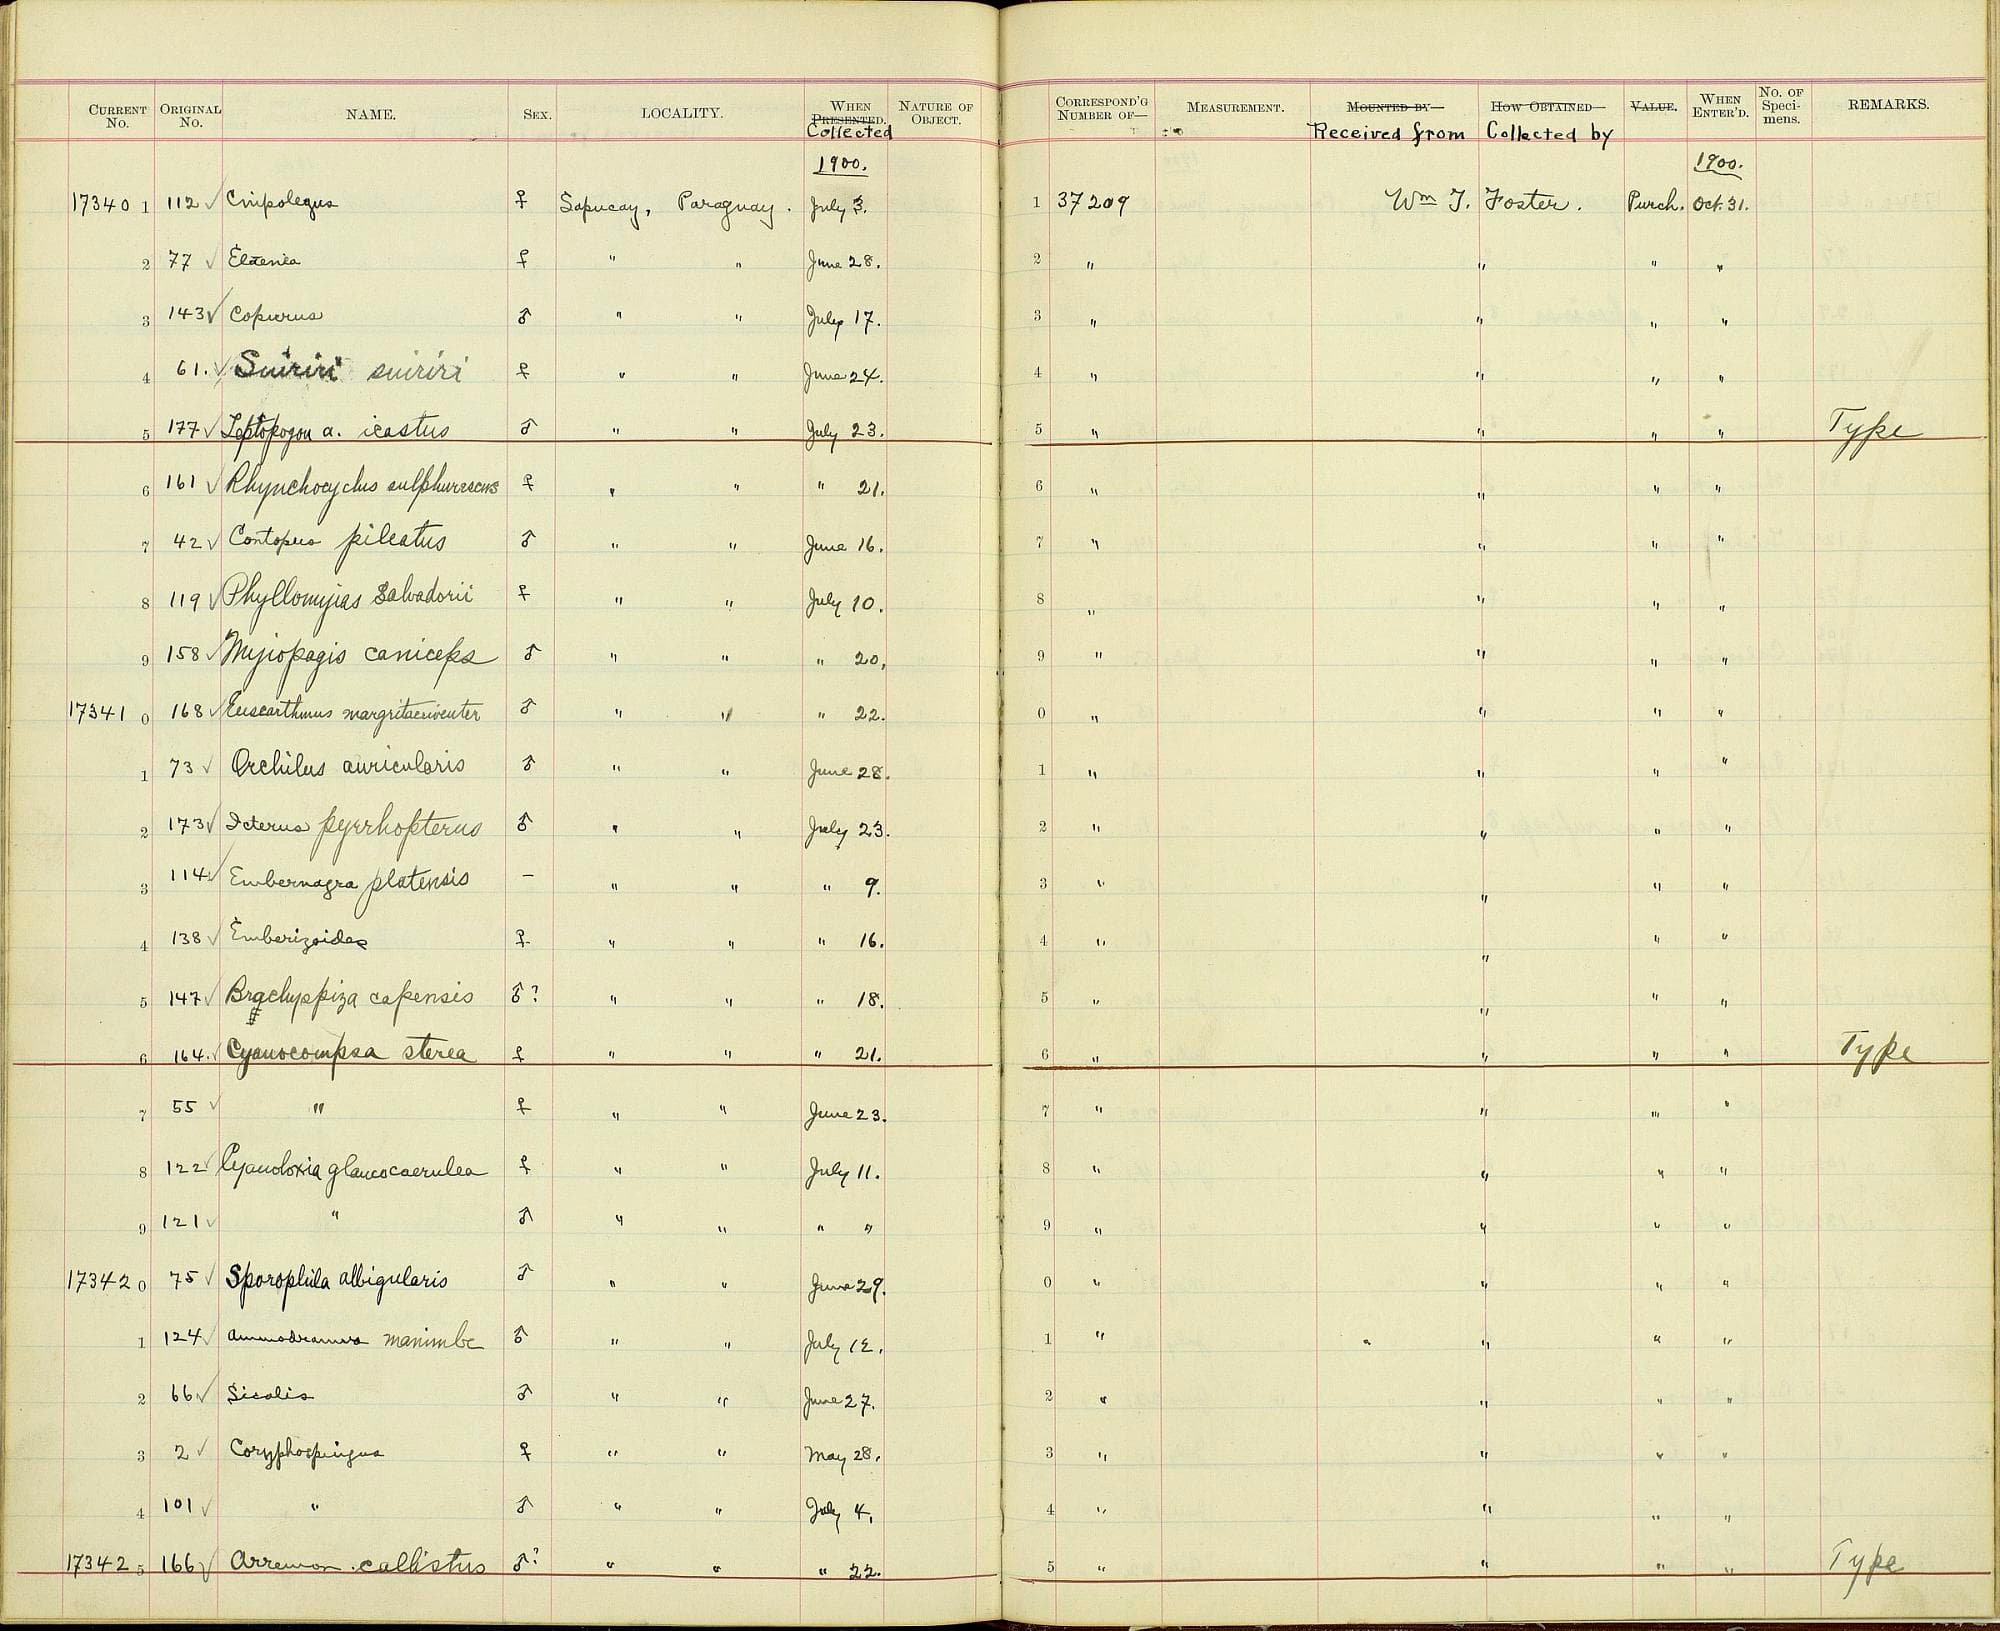 CURRENT No. ORIGINAL No. NAME. SEX. LOCALITY. WHEN PRESENTED. Collected NATURE OF OBJECT. CORRESPOND'G NUMBER OF— MEASUREMENT. MOUNTED BY— Received from HOW OBTAINED— Collected by VALUE. WHEN ENTER'D. No. OF Speci-mens. REMARKS.
1900. 1900.
17340 1 112 ✓ Cnipolegus ♀ Sapucay, Paraguay. July 3. 1 37209 Wm T. Foster. Purch. Oct. 31.
2 77 ✓ Elaenia ♀ " " June 28. 2 " " " "
3 143 ✓ Copurus ♂ " " July 17. 3 " " " "
4 61. ✓ Suiriri suiriri ♀ " " June 24. 4 " " " "
5 177 ✓ Leptopogon a. icastus ♂ " " July 23. 5 " " " " Type
6 161 ✓ Rhynchocyclus sulphurescens ♀ " " " 21. 6 " " " "
7 42 ✓ Contopus pileatus ♂ " " June 16. 7 " " " "
8 119 ✓ Phyllomyias Salvadorii ♀ " " July 10. 8 " " " "
9 158 ✓ Myiopagis caniceps ♂ " " " 20. 9 " " " "
17341 0 168 ✓ Euscarthmus margritaceiventer ♂ " " " 22. 0 " " " "
1 73 ✓ Orchilus auricularis ♂ " " June 28. 1 " " " "
2 173 ✓ Icterus pyrrhopterus ♂ " " July 23. 2 " " " "
3 114 ✓ Embernagra platensis – " " " 9. 3 " " " "
4 138 ✓ Emberizoides ♀ " " " 16. 4 " " " "
5 147 ✓ Brachyspiza capensis ♂? " " " 18. 5 " " " "
6 164. ✓ Cyanocompsa sterea ♀ " " " 21. 6 " " " " Type
7 55 ✓ " ♀ " " June 23. 7 " " " "
8 122 ✓ Cyanoloxia glaucocaerulea ♀ " " July 11. 8 " " " "
9 121 ✓ " ♂ " " " " 9 " " " "
17342 0 75 ✓ Sporophila albigularis ♂ " " June 29. 0 " " " "
1 124 ✓ Ammodramus manimbe ♂ " " July 12. 1 " " " " "
2 66 ✓ Sicalis ♂ " " June 27. 2 " " " "
3 2 ✓ Coryphospingus ♀ " " May 28. 3 " " " "
4 101 ✓ " ♂ " " July 4. 4 " " " "
17342 5 166 ✓ Arremon callistus ♂? " " " 22. 5 " " " " Type